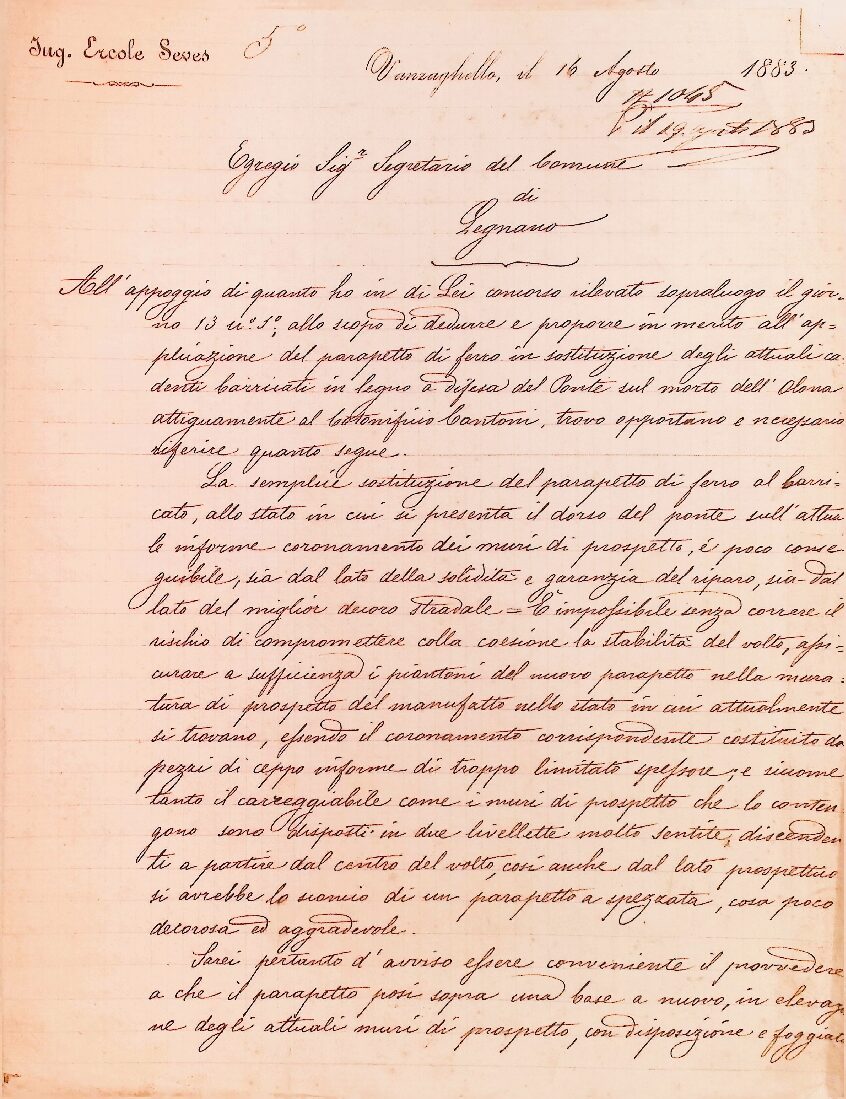 Ing. Ercole Seves
5°
Vanzaghello, il 16 Agosto 1883.
N 1045
il 19 agosto 1883
Egregio Sigr Segretario del Comune
di
Legnano
All'appoggio di quanto ho in di Lei concorso rilevato sopraluogo il gior-
no 13 u.° s.°, allo scopo di dedurre e proporre in merito all'ap-
plicazione del parapetto di ferro in sostituzione degli attuali ca
denti barricati in legno a difesa del Ponte sul morto dell'Olona
attiguamente al Cotonificio Cantoni, trovo opportuno e necessario
riferire quanto segue.
La semplice sostituzione del parapetto di ferro al barri-
cato, allo stato in cui si presenta il dorso del ponte sull'attua
le informe coronamento dei muri di prospetto, è poco conse
guibile, sia dal lato della solidità e garanzia del riparo, sia dal
lato del miglior decoro stradale = E' impossibile senza correre il
rischio di compromettere colla coesione la stabilità del volto, assi-
curare a sufficienza i piantoni del nuovo parapetto nella mura-
tura di prospetto del manufatto nello stato in cui attualmente
si trovano, essendo il coronamento corrispondente costituito da
pezzi di ceppo informe di troppo limitato spessore; e siccome
tanto il carreggiabile come i muri di prospetto che lo conten
gono sono disposti in due livellette molto sentite, discenden
ti a partire dal centro del volto, così anche dal lato prospettico
si avrebbe lo sconcio di un parapetto a spezzata, cosa poco
decorosa ed aggradevole.
Sarei pertanto d'avviso essere conveniente il provvedere
a che il parapetto posi sopra una base a nuovo, in elevazio
ne degli attuali muri di prospetto, con disposizione e foggiata